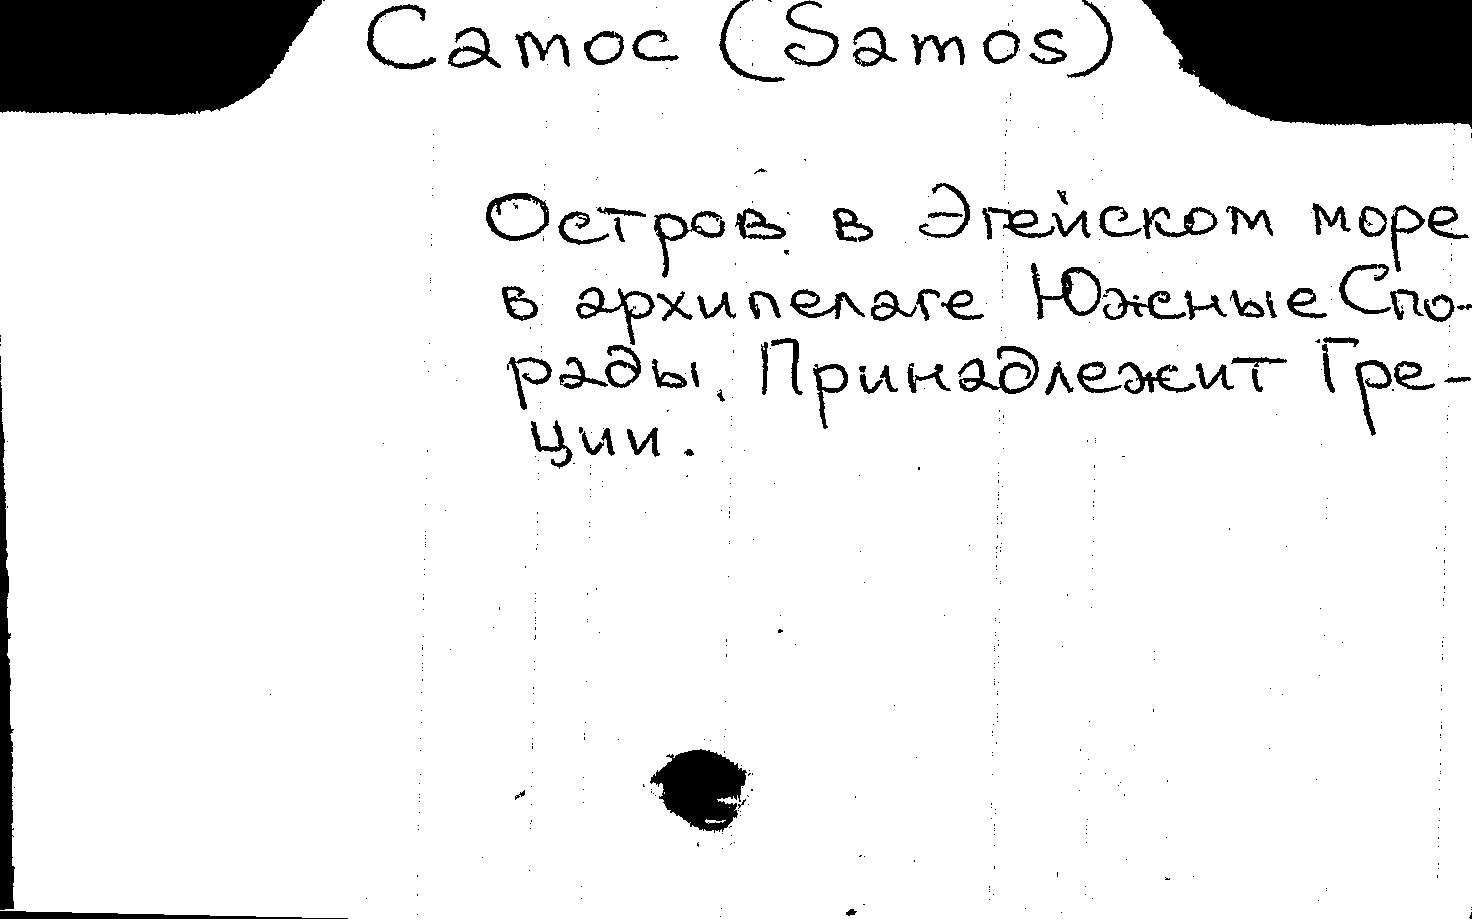 Самос (Samos)
Остров в Эгейском море
в архипелаге Южные Спо-
рады. Принадлежит Гре-
ции.